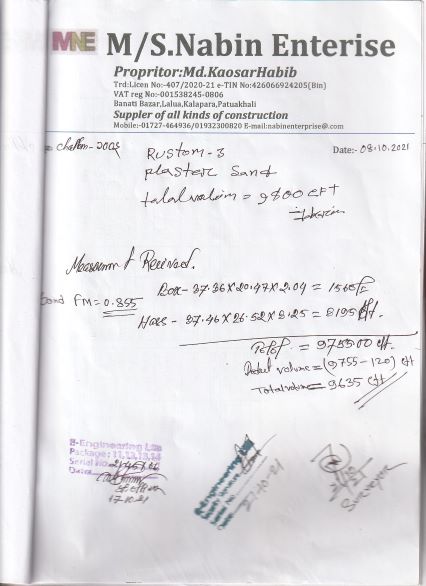 MNE M/S.Nabin Enterise
Propritor:Md.KaosarHabib
Trd:Licen No:-407/2020-21 e-TIN No:426066924205(Bin)
VAT reg No:-001538245-0806
Banati Bazar,Lalua,Kalapara,Patuakhali
Suppler of all kinds of construction
Mobile:-01727-464936/01932300820 E-mail:nabinenterprise@.com
Date:- 08.10.2021
RUSTOM-3
plaster Sand
total volum = 9800 CFT
Measurment Received.
Box - 37.36×20.47×2.04 = 1560
Sand FM = 0.855
Haes - 37.46×26.52×8.25 = 8195 cft.
Total = 9755.00 cft.
volume = (9755-120) cft
Total volum = 9635 cft
E-Engineering Lab
Package: 11,12,13,14
Serial No.
Date
17.10.21
Surveyor